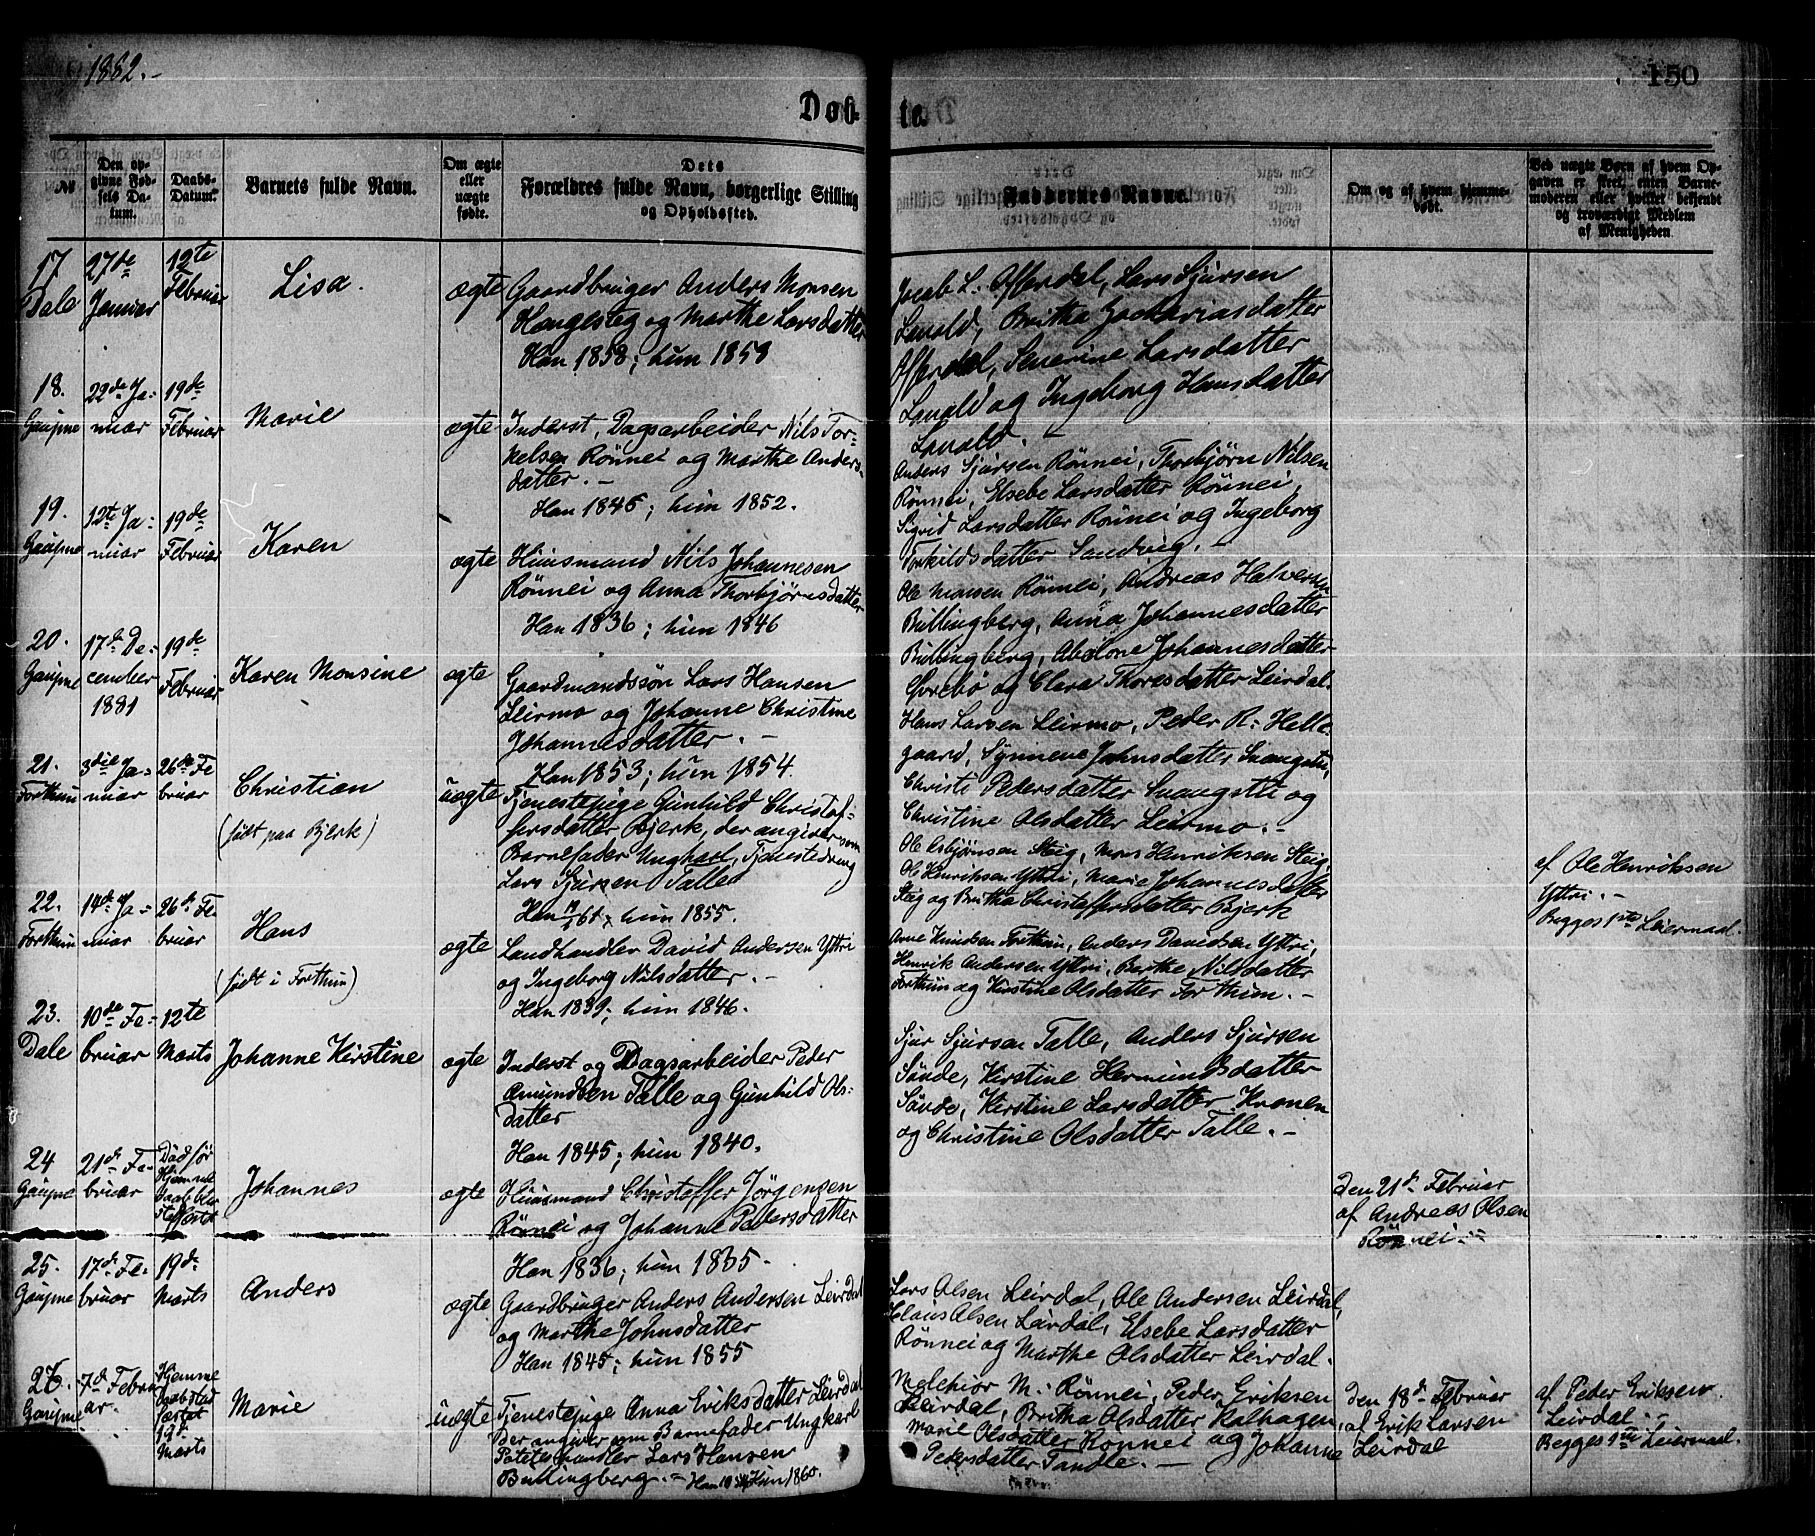 1882.-
150
Døb- te.
No
Den op-
givne Fød-
sels Da-
tum.
Daabs-
Datum.
Barnets fulde Navn.
Om ægte
eller
uægte
fødte.
Dets
Forældres fulde Navn, borgerlige Stilling
og Opholdssted.
Faddernes Navne.
Om og af hvem hjemme-
døbt.
Ved uægte Børn af hvem Op-
gaven er skeet, enten Barne-
moderen eller hvilket bekjendt
og troværdigt Medlem
af Menigheden.
17
Dale
27de
Januar
12te
Februar
Lisa.
ægte
Gaardbruger Anders Monsen
Haugesteg og Marthe Larsdatter
Han 1858; hun 1859
Jacob L. Afferdal, Lars Sjursen
Lavald, Britha Zachariasdatter
Afferdal, Severine Larsdatter
Lavald og Ingeborg Hansdatter
Lavald.
18.
Gaupne
22de Ja-
nuar
19de
Februar
Marie
ægte
Inderst, Dagsarbeider Nils Tor-
kelsen Rønnei og Marthe Anders-
datter. -
Han 1845; hun 1852.
Anders Sjursen Rønnei, Thorbjørn Nilsen
Rønnei, Elsebe Larsdatter Rønnei,
Sigrid Larsdatter Rønnei og Ingeborg
Torkildsdatter Sandvig. -
19.
Gaupne
12te Ja-
nuar
19de
Februar
Karen
ægte
Huusmand Nils Johannesen
Rønnei og Anna Thorbjørnsdatter
Han 1836; hun 1846
Ole Monsen Rønnei, Andreas Halversen
Bullingberg, Anna Johannesdatter
Bullingberg, Abelone Johannesdatter
og Clara Thoresdatter Leirdal.
20.
Gaupne
17de De-
cember
1881
19de
Februar
Karen Monsine
ægte
Gaardmandssøn Lars Hansen
Leirmo og Johanne Christine
Johannesdatter. -
Han 1853; hun 1854.
Hans Larsen Leirmo, Peder R. Helle-
gaard, Synneve Johnsdatter Snangstu,
Christi Pedersdatter Snangstu og
Christine Olsdatter Leirmo. -
21.
Forthun
3die Ja-
nuar
26de Fe
bruar
Christian
(født paa Bjerk)
uægte
Tjenestepige Gunhild Christof-
fersdatter Bjerk, der angiver som
Barnefader Ungkarl, Tjenestedreng
Lars Sjursen Talle
hun 1855.
Ole Esbjørnsen Steig, Mons Henriksen Steig,
Ole Henriksen Yttri, Marie Johannesdatter
Steig og Britha Christoffersdatter Bjerk
af Ole Henriksen
Yttri. -
Begges 1ste Leiermaal.
22.
Forthun
14de Ja-
nuar
26de Fe
bruar
Hans
(født i Forthun)
ægte
Landhandler David Andersen Yttri
og Ingeborg Nilsdatter. -
Han 1839; hun 1846.
Arne Knudsen Forthun, Anders Davidsen Yttri,
Henrik Andersen Yttri, Berthe Nilsdatter
Forthun og Kirstine Olsdatter Forthun. -
23.
Dale
10de Fe-
bruar
12te
Marts
Johanne Kirstine
ægte
Inderst og Dagsarbeider Peder
Amundsen Talle og Gunhild Ols-
datter
Han 1845; hun 1840.
Sjur Sjursen Talle, Anders Sjursen
Søvde, Kirstine Hermundsdatter
Søvde, Kirstine Larsdatter Kronen
og Christine Olsdatter Talle. -
24
Gaupne
21de Fe-
bruar
Død før
Hjemme
daab blev
stadfæstet
Johannes
ægte
Huusmand Christoffer Jörgensen
Rønnei og Johanne Pedersdatter
Han 1836; hun 1835.
Den 21de Februar
af Andreas Olsen
Rønnei. -
25.
Gaupne
17de Fe-
bruar
19de
Marts
Anders
ægte
Gaardbruger Anders Andersen Leirdal
og Marthe Johnsdatter
Han 1845; hun 1855
Lars Olsen Leirdal, Ole Andersen Leirdal,
Claus Olsen Leirdal, Elsebe Larsdatter
Rønnei og Marthe Olsdatter Leirdal.
26.
Gaupne
7de Febru
ar.
Hjemme
daab stad
fæstet
19de
Marts
Marie
uægte
Tjenestepige Anna Eriksdatter Leirdal
Der angiver som Barnefader Ungkarl
Poteteshandler Lars Hansen
Bullingberg. - Hun 1860.
Melchior M. Rønnei, Peder Eriksen
Leirdal, Britha Olsdatter Kalhagen,
Marie Olsdatter Rønnei og Johanne
Pedersdatter Tandle. -
Den 18de Februar
af Erik Larsen
Leirdal
af Peder Eriksen
Leirdal. -
Begges 1ste Leiermaal.